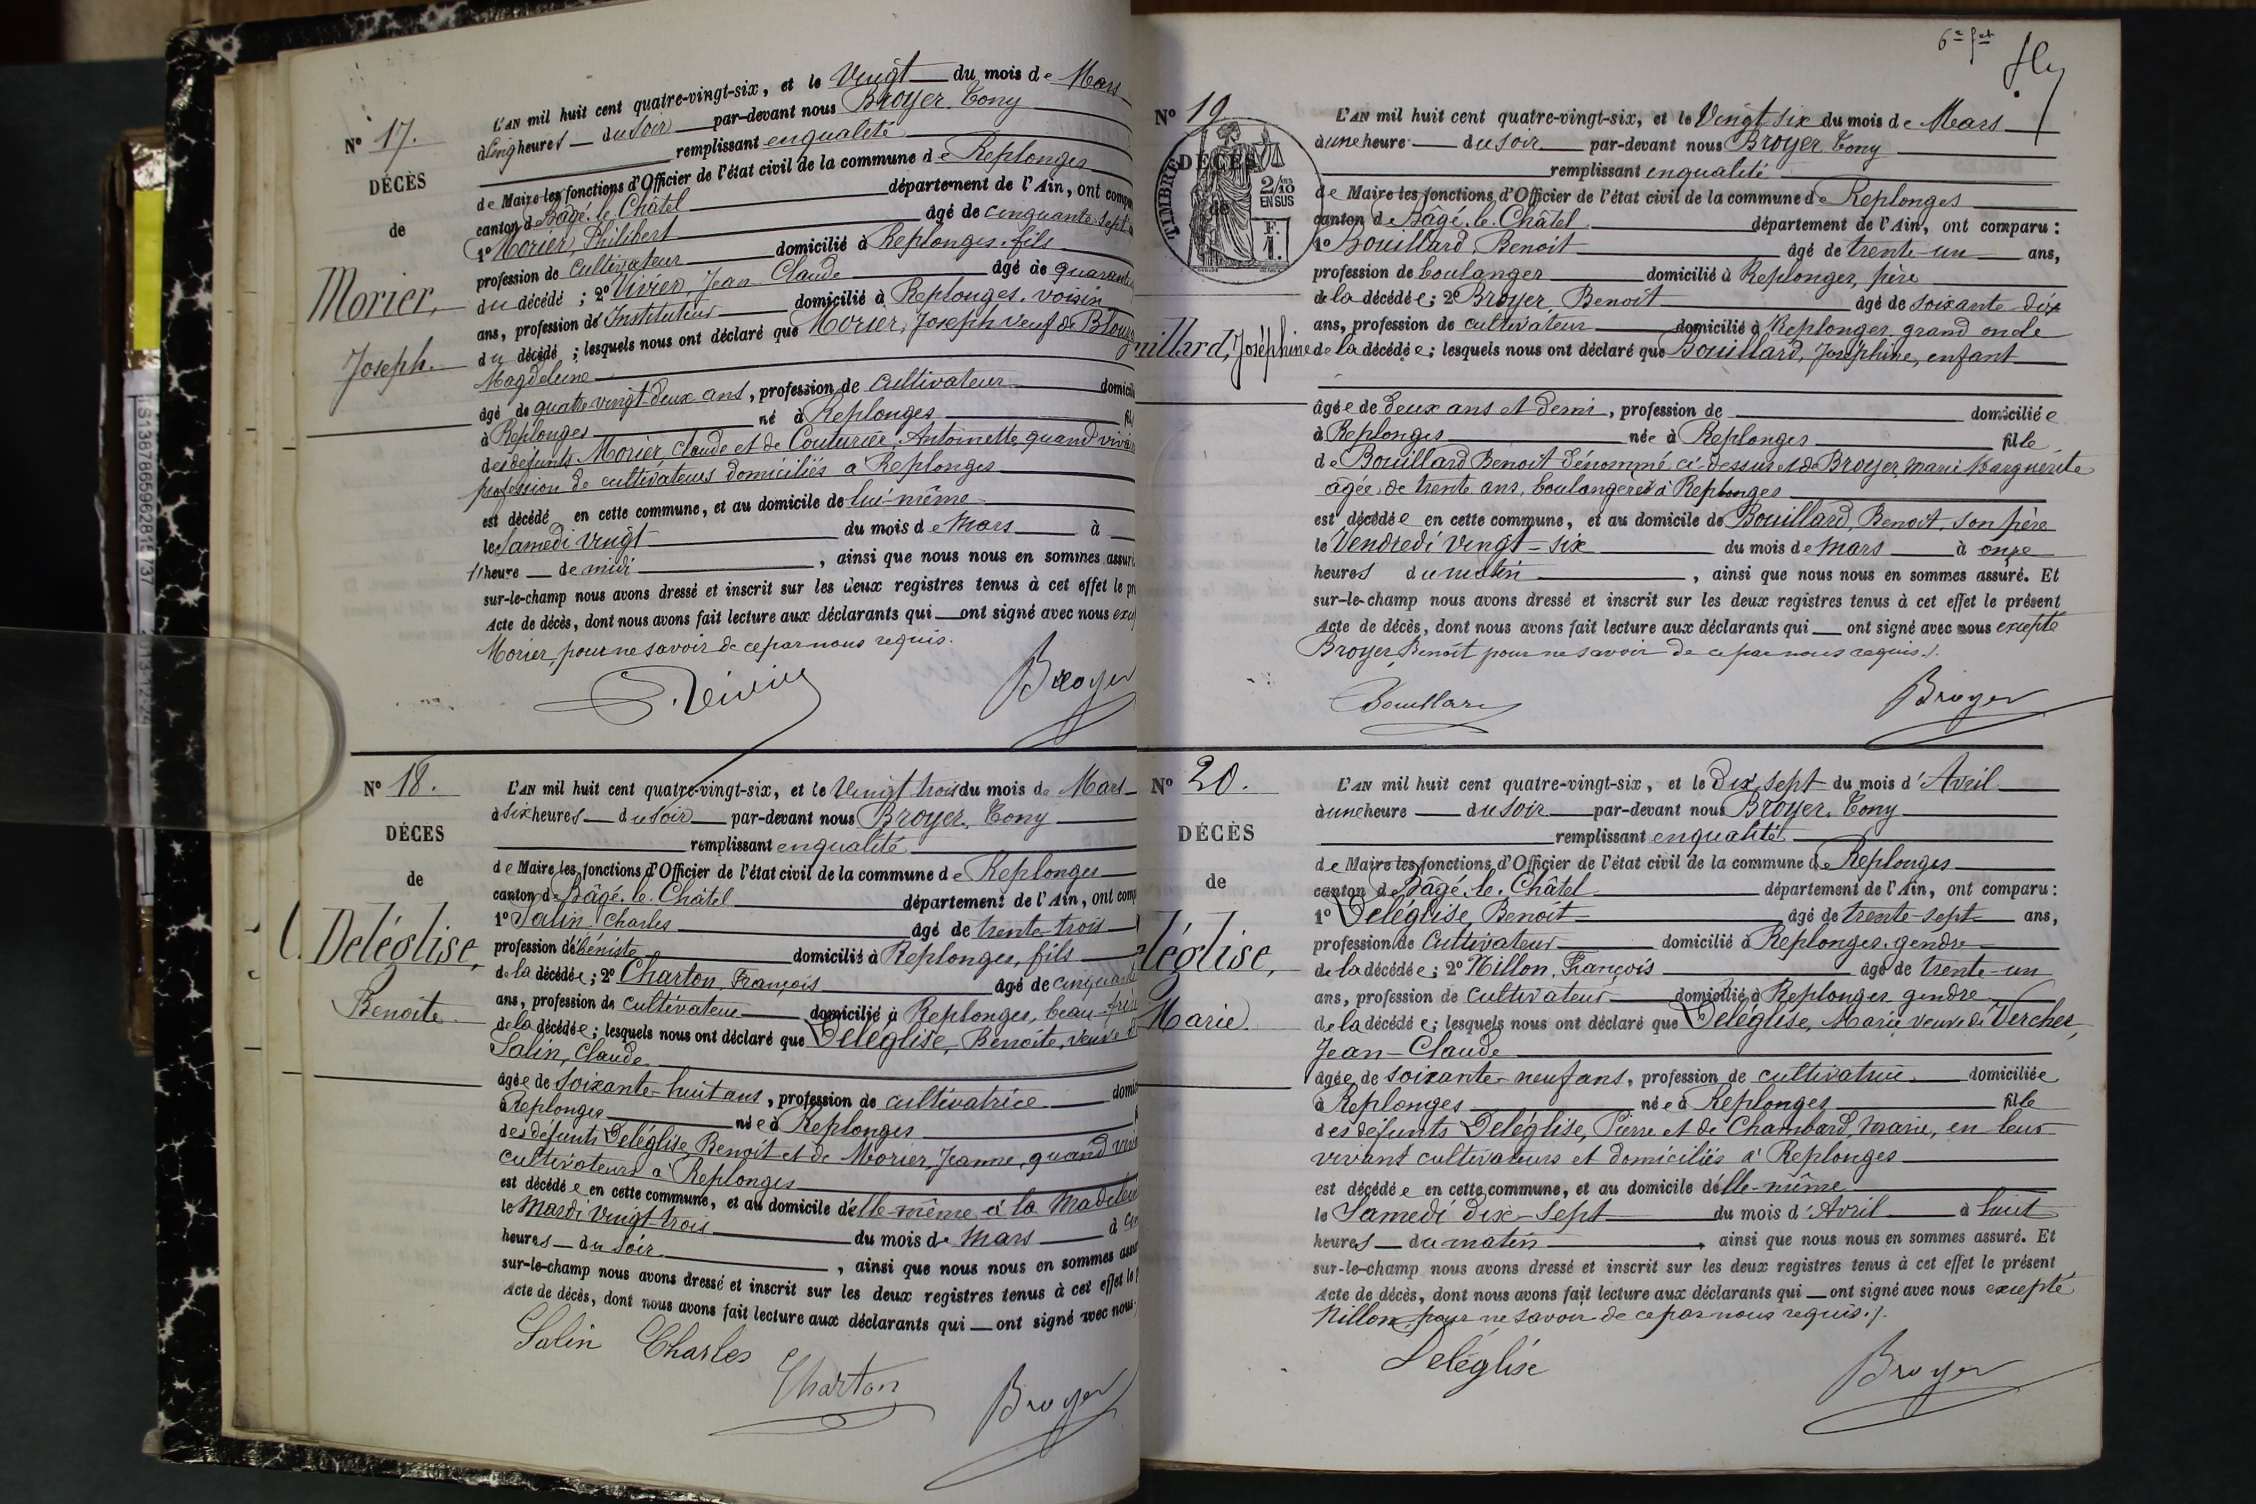 N° 17.
DÉCÈS
de
Morier,
Joseph.
L'AN mil huit cent quatre-vingt-six, et le Vingt du mois de Mars
à cinq heures du soir par-devant nous Broyer Tony
remplissant en qualité
de Maire les fonctions d'Officier de l'état civil de la commune de Replonges
canton de Bâgé-le-Châtel département de l'Ain, ont
1° Morier, Philibert âgé de cinquante-sept
profession de cultivateur domicilié à Replonges, fils
du décédé ; 2° Vivier, Jean Claude âgé de quarante
ans, profession de Instituteur domicilié à Replonges, voisin
du décédé ; lesquels nous ont déclaré que Morier, Joseph veuf de
Magdeleine
âgé de quatre vingt-deux ans, profession de cultivateur
à Replonges né à Replonges
des défunts Morier, Claude et de Couturier, Antoinette quand
profession de cultivateurs domiciliés à Replonges
est décédé en cette commune, et au domicile de lui-même
le Samedi vingt du mois de Mars à
heure de midi , ainsi que nous nous en sommes
sur-le-champ nous avons dressé et inscrit sur les deux registres tenus à cet effet le
Acte de décès, dont nous avons fait lecture aux déclarants qui ont signé avec nous
Morier, pour ne savoir de ce par nous requis.
Broyer
N° 18.
DÉCÈS
de
Deléglise,
Benoite.
L'AN mil huit cent quatre-vingt-six, et le Vingt trois du mois de Mars
à six heures du soir par-devant nous Broyer, Tony
remplissant en qualité
de Maire les fonctions d'Officier de l'état civil de la commune de Replonges
canton de Bâgé-le-Châtel département de l'Ain, ont
1° Salin Charles âgé de trente-trois
profession d'ébéniste domicilié à Replonges, fils
de la décédée ; 2° Charton, François âgé de
ans, profession de cultivateur domicilié à Replonges, beau-
de la décédée ; lesquels nous ont déclaré que Deléglise, Benoite, veuve
Salin, Claude
âgée de soixante-huit ans, profession de cultivatrice
à Replonges née à Replonges
des défunts Deléglise Benoit et de Morier, Jeanne, quand
cultivateurs à Replonges
est décédée en cette commune, et au domicile d'elle-même à la
le Mardi vingt-trois du mois de Mars à
heures du soir , ainsi que nous nous en sommes
sur-le-champ nous avons dressé et inscrit sur les deux registres tenus à cet effet le
Acte de décès, dont nous avons fait lecture aux déclarants qui ont signé avec nous
Salin Charles
Charton
Broyer
N° 19
TIMBRE
DÉCÈS
de
2/10
EN SUS
F.
1.
Joséphine
L'AN mil huit cent quatre-vingt-six, et le Vingt six du mois de Mars
à une heure du soir par-devant nous Broyer Tony
remplissant en qualité
de Maire les fonctions d'Officier de l'état civil de la commune de Replonges
canton de Bâgé-le-Châtel département de l'Ain, ont comparu :
1° Bouillard, Benoit âgé de trente-un ans,
profession de boulanger domicilié à Replonges, père
de la décédée ; 2° Broyer, Benoît âgé de soixante-dix
ans, profession de cultivateur domicilié à Replonges grand oncle
de la décédée ; lesquels nous ont déclaré que Bouillard, Joséphine, enfant
âgée de deux ans et demi, profession de domiciliée
à Replonges née à Replonges fille
de Bouillard Benoit dénommé ci-dessus et de Broyer, Marie Marguerite
âgée de trente ans, boulangère à Replonges
est décédée en cette commune, et au domicile de Bouillard, Benoit, son père
le Vendredi vingt-six du mois de mars à onze
heures du matin , ainsi que nous nous en sommes assuré. Et
sur-le-champ nous avons dressé et inscrit sur les deux registres tenus à cet effet le présent
Acte de décès, dont nous avons fait lecture aux déclarants qui ont signé avec nous excepté
Broyer, Benoît pour ne savoir de ce par nous requis./.
Bouillard
Broyer
N° 20.
DÉCÈS
de
Marie.
L'AN mil huit cent quatre-vingt-six, et le Dix sept du mois d'Avril
à une heure du soir par-devant nous Broyer, Tony
remplissant en qualité
de Maire les fonctions d'Officier de l'état civil de la commune de Replonges
canton de Bâgé-le-Châtel département de l'Ain, ont comparu :
1° Deléglise, Benoit âgé de trente-sept ans,
profession de cultivateur domicilié à Replonges, gendre
de la décédée ; 2° Nillon, François âgé de trente-un
ans, profession de cultivateur domicilié à Replonges gendre
de la décédée ; lesquels nous ont déclaré que Deléglise, Marie veuve de Vercher,
Jean-Claude
âgée de soixante-neuf ans, profession de cultivatrice domiciliée
à Replonges née à Replonges fille
des défunts Deléglise, Pierre et de Chambard, Marie, en leur
vivant cultivateurs et domiciliés à Replonges
est décédée en cette commune, et au domicile d'elle-même
le Samedi dix-sept du mois d'Avril à huit
heures du matin , ainsi que nous nous en sommes assuré. Et
sur-le-champ nous avons dressé et inscrit sur les deux registres tenus à cet effet le présent
Acte de décès, dont nous avons fait lecture aux déclarants qui ont signé avec nous excepté
Nillon, pour ne savoir de ce par nous requis./.
Deléglise
Broyer